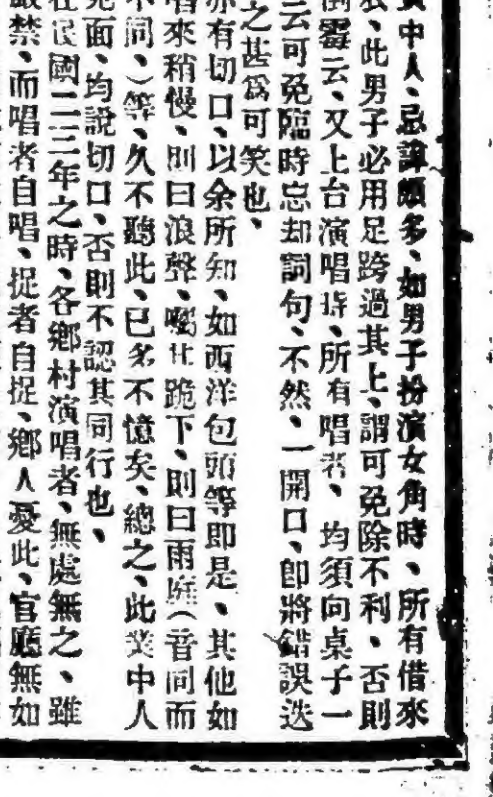 中人、忌諱頗多、如男子扮演女角時、所有借來
、此男子必用足跨過其上、謂可免除不利、否則
倒霉云、又上台演唱時、所有唱者、均須向桌子一
云可免臨時忘却詞句、不然、一開口、卽將錯誤迭
之甚爲可笑也、
亦有切口、以余所知、如西洋包頭等卽是、其他如
唱來稍慢、則曰浪聲、囑其跪下、則曰雨(音同而
不同、)等、久不聽此、已多不憶矣、總之、此業中人
見面、均說切口、否則不認其同行也、
在民國二三年之時、各鄉村演唱者、無處無之、雖
嚴禁、而唱者自唱、捉者自捉、鄉人憂此、官廳無如